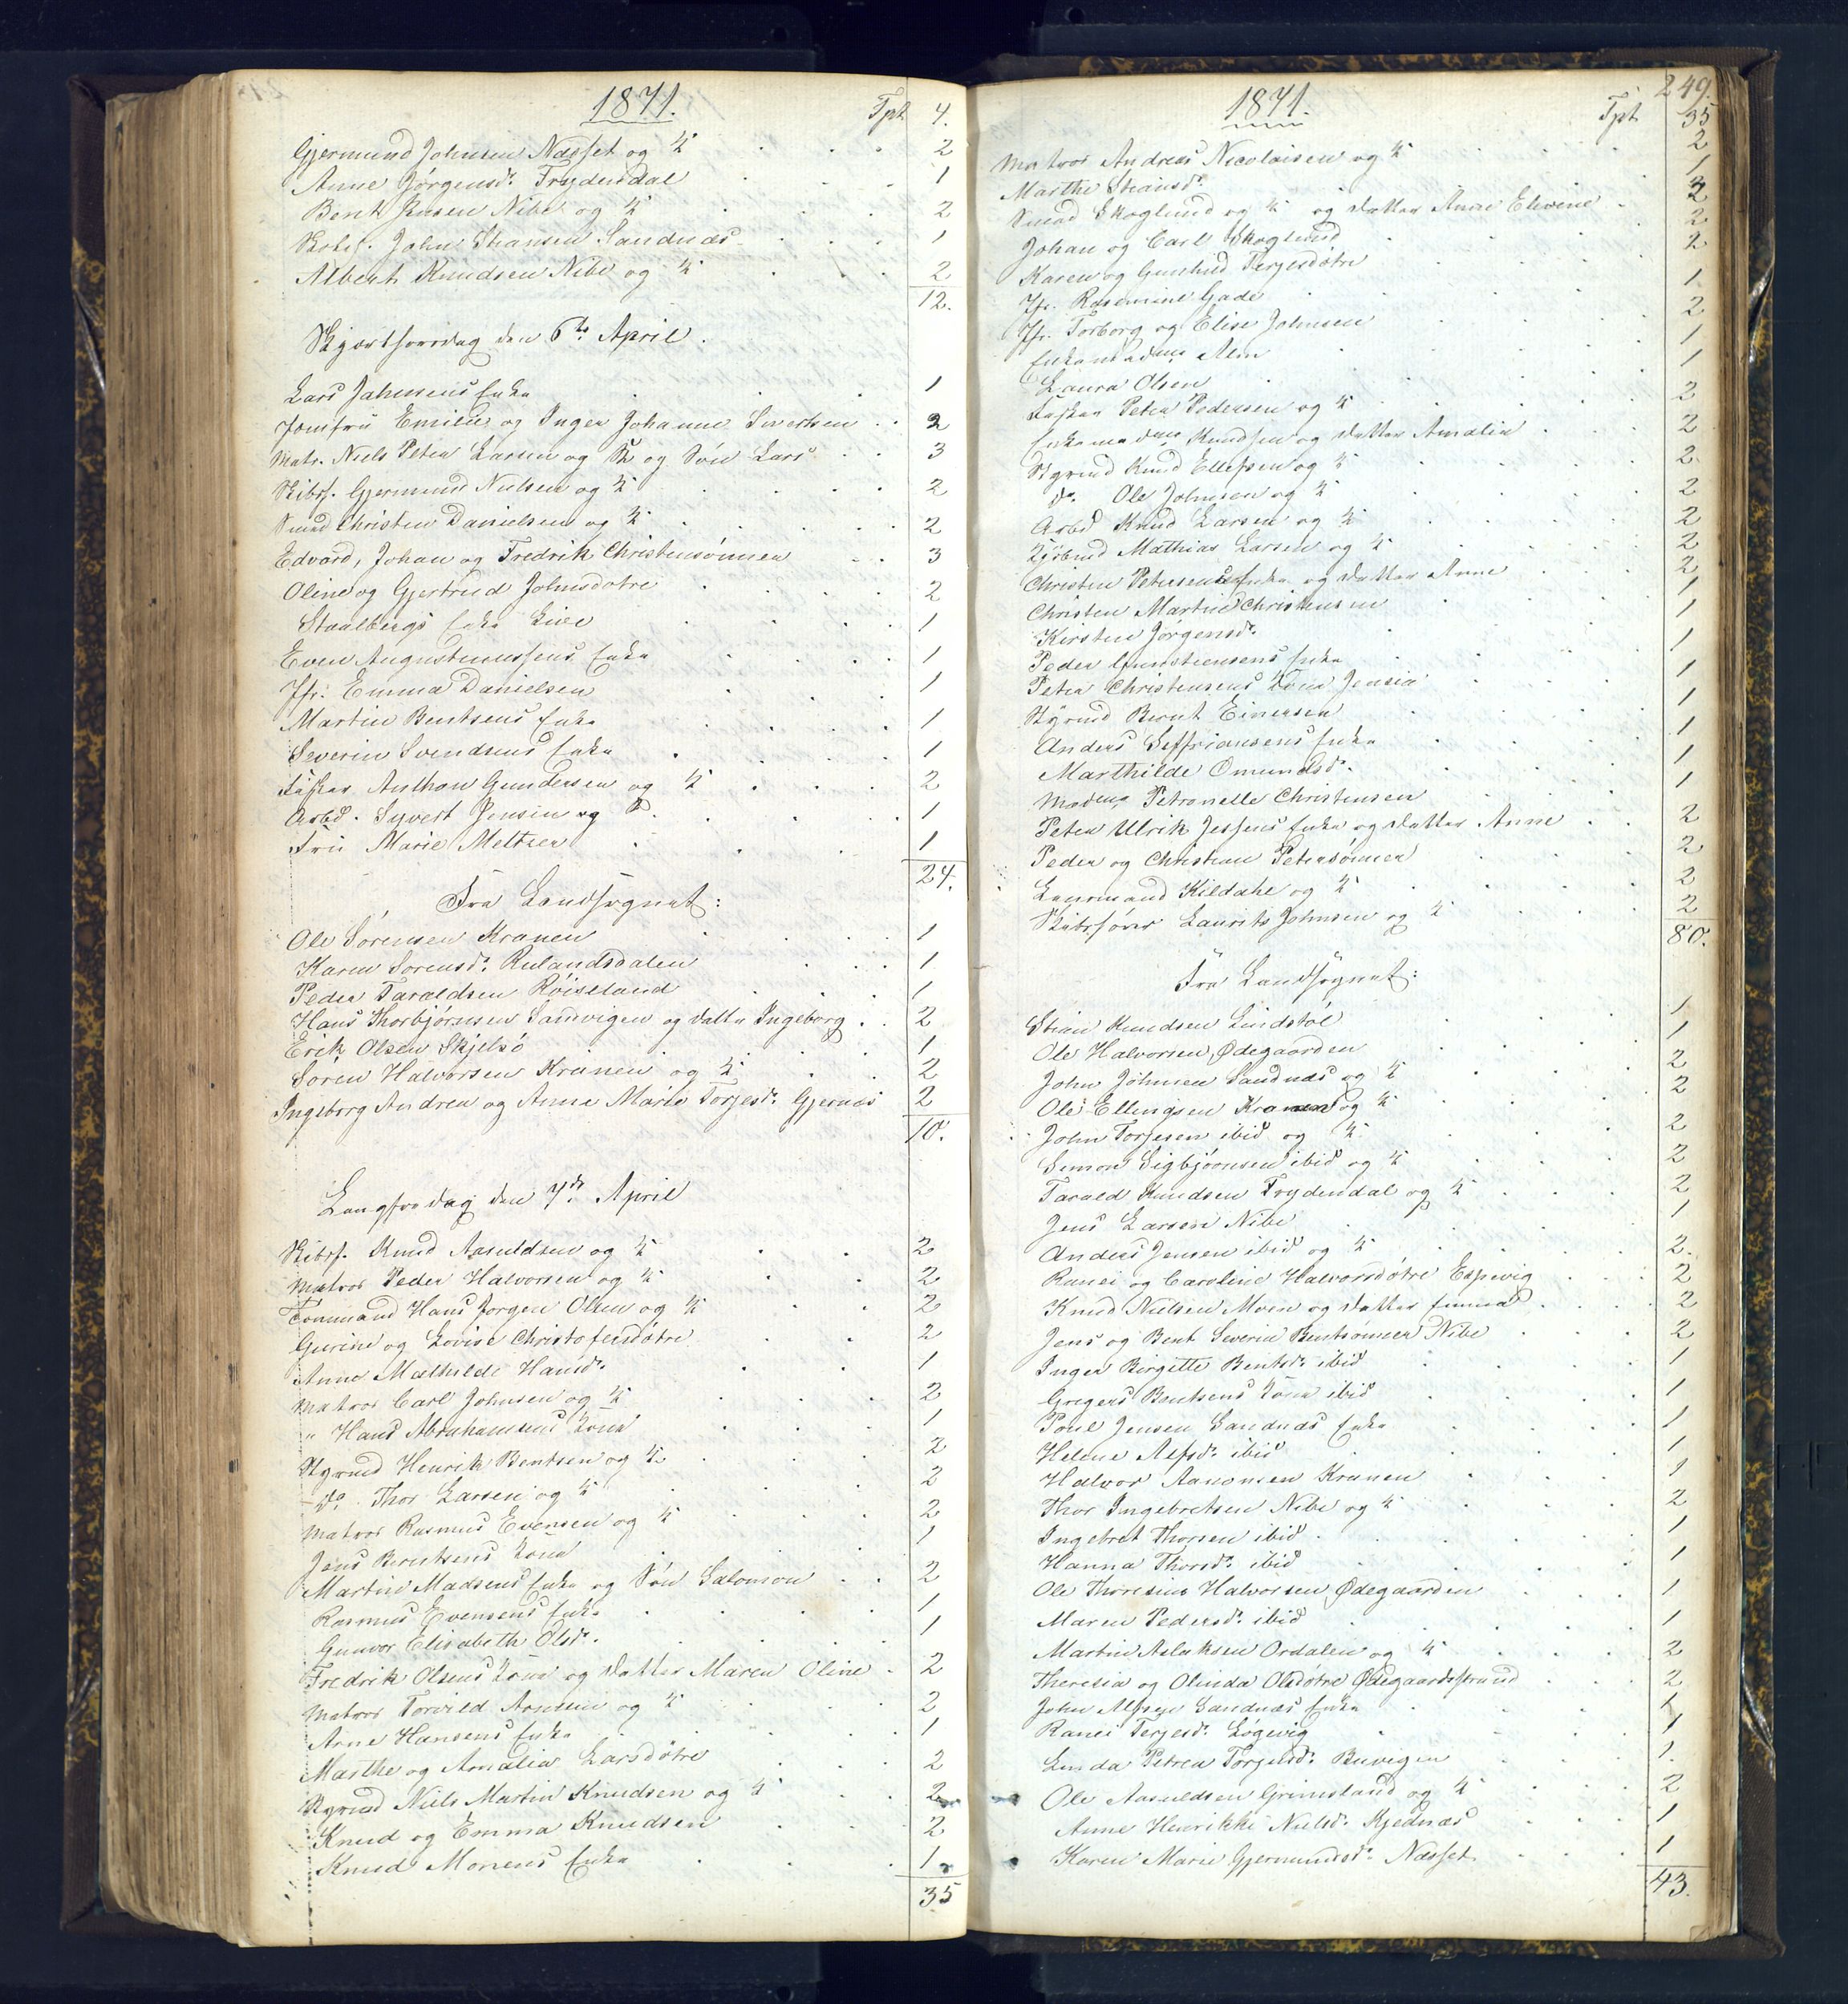 1871.
Tpt 4.
Gjermund Johnsen Næsset og K 2
Anne Jörgensdr. Frydendal 1
Bent Jensen Nibe og K 2
Skibsf. John Stiansen Sandnæs 1
Albert Knudsen Nibe og K 2
12.
Skjærthorsdag den 6te April.
Lars Jahnsens Enke 1
Jomfru Emilie og Inger Johanne Sivertsen 2
Matr. K Niels Peter Larsen og K og Sön Lars 3
Skibsf. Gjermund Nielsen og K 2
Smed Christen Danielsen og K 2
Edvard, Johan og Fredrik Christensönner 3
Oline og Gjertrud Johnsdötre 2
Staalbergs Enke Live 1
Even Augustinussens Enke 1
Jfr. Emma Danielsen 1
Martin Bentsens Enke 1
Severin Svendsens Enke 1
Fisker Anthon Gundersen og K 2
Arbd. Syvert Jensen og K. 1
Fru Marie Meltzer 1
24.
Fra Landsognet:
Ole Sörensen Kranen 1
Karen Sörensdr. Rulandsdalen 1
Peder Taraldsen Röiseland 1
Hans Thorbjörnsen Sandvigen og Datter Ingeborg 2
Erik Olsen Skjelsö 1
Sören Halvorsen Kranen og K 2
Ingeborg Andrea og Anne Marie Torjesdr. Gjernæs 2
10.
Langfredag den 7de April
Skibsf. Knud Aanuldsen og K 2
Matros Peder Halvorsen og K 2
Tömmand Hans Jörgen Olsen og K 2
Gurine og Lovise Christofersdötre 2
Anne Mathilde Hansdr. 1
Matros Carl Johnsen og K 2
" Hans Abrahamsens Kone 1
Styrmd Henrik Bentsen og K 2
do. Thor Larsen og K 2
Matros Rasmus Evensen og K 2
Jens Berntsens Kone 1
Martin Madsens Enke og Sön Salomon 2
Rasmus Evensens Enke 1
Gunvor Elisabeth Olsdr. 1
Fredrik Olsens Kone og Datter Maren Oline 2
Matros Torvild Arnesen og K 2
Arne Hansens Enke 1
Marthe og Amalia Larsdötre 2
Styrmd Niels Martin Knudsen og K 2
Knud og Emma Knudsen 2
Knud Monsens Enke 1
35
249.
1871.
Tpt 35
Matros Andreas Nicolaisen og K 2
Marthe Stiansdr. 1
Smed Skoglund og K og Datter Anne Elevine 3
Johan og Carl Skoglund 2
Karen og Gunhild Terjesdötre 2
Jfr. Rosemine Gade 1
Jfr. Torborg og Elise Johnsen 2
Enkemadme Alm 1
Laura Olsen 1
Fisker Peter Pedersen og K 2
Enkemadme Knudsen og Datter Amalia 2
Styrmd Knud Ellefsen og K 2
do. Ole Johnsen og K 2
Arbd Knud Larsen og K 2
Kjöbmd Mathias Larsen og K 2
Christen Petersens Enke og Datter Anne 2
Christen Martin Christensen 1
Kirsten Jörgensdr. 1
Peder Gunsteensens Enke 1
Peter Christensens Kone Jensia 1
Styrmd Bernt Einersen 1
Anders Seffriansens Enke 1
Marthilde Omundsdr. 1
Madme Petronelle Christensen 1
Peter Ulrik Jessens Enke og Datter Anne 2
Peder og Christian Petersönner 2
Lensmand Kildahl og K 2
Skibsförer Laurits Johnsen og K 2
80.
Fra Landsognet:
Stian Knudsen Lindstöl 1
Ole Halvorsen Ödegaarden 1
John Johnsen Sandnæs og K 2
Ole Ellingsen Kranen og K 2
John Torjesen ibid og K 2
Simon Sigbjörnsen ibid og K 2
Tarald Knudsen Frydendal og K 2
Jens Larsen Nibe 1
Anders Jensen ibid og K 2.
Ranei og Caroline Halvorsdötre Espevig 2
Knud Nielsen Moen og Datter Emma 2
Jens og Bent Severin Bentsönner Nibe 2
Inger Birgitte Bentsdr. ibid 1
Gregers Bentsens Kone ibid 1
Poul Jensen Sandnæs Enke 1
Helene Alfsdr. ibid 1
Halvor Aanonsen Kranen 1
Thor Ingebretsen Nibe og K 2
Ingebret Thorsen ibid 1
Hanna Thorsdr. ibid 1
Ole Thoresius Halvorsen Ödegaarden 1
Maren Pedersdr. ibid 1
Martin Aslaksen Ordalen og K 2
Theresia og Olinda Olsdötre Ödegaardsstrand 2
John Alfsen Sandnæs Enke 1
Ranei Terjesdr. Lögevig 1
Linda Petrea Torjusdr. Buvigen 1.
Ole Aanuldsen Grimsland og K 2
Anne Henrikke Nielsdr. Kjednæs 1
Karen Marie Gjermundsdr. Næsset 1
43.